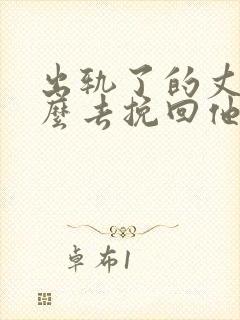 出轨了的丈
麼去挽回他
卓布1